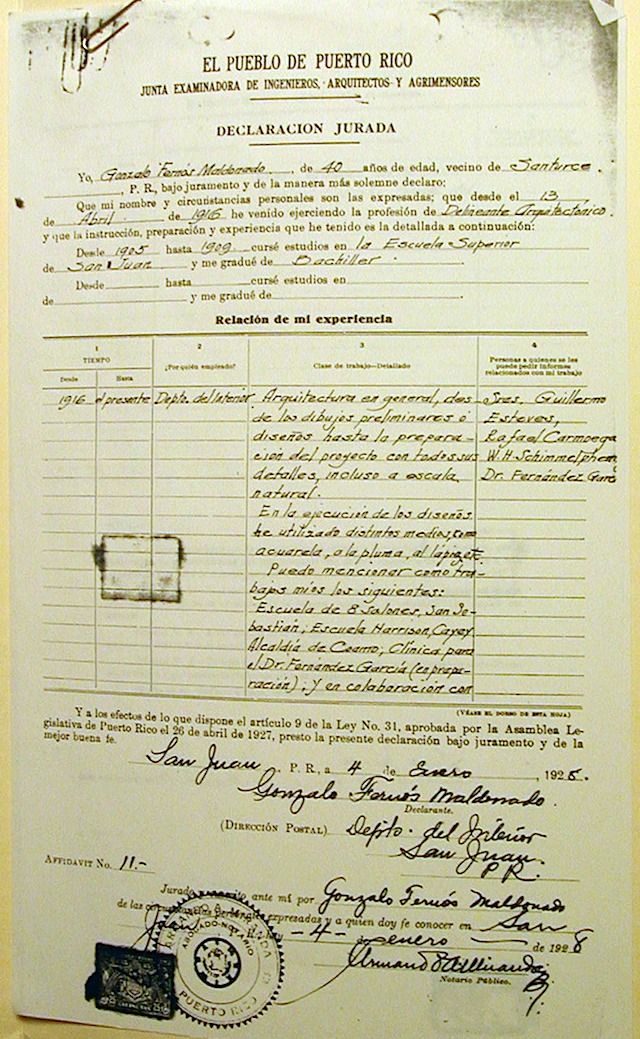 EL PUEBLO DE PUERTO RICO
JUNTA EXAMINADORA DE INGENIEROS, ARQUITECTOS Y AGRIMENSORES
DECLARACION JURADA
Yo, Gonzalo Fernós Maldonado, de 40 años de edad, vecino de Santurce,
, P. R., bajo juramento y de la manera más solemne declaro:
Que mi nombre y circunstancias personales son las expresadas; que desde el 13
de Abril de 1916 he venido ejerciendo la profesión de Delineante Arquitectónico
y que la instrucción, preparación y experiencia que he tenido es la detallada a continuación:
Desde 1905 hasta 1909 cursé estudios en la Escuela Superior
de San Juan y me gradué de Bachiller.
Desde hasta cursé estudios en
de y me gradué de
Relación de mi experiencia
1 2 3 4
TIEMPO
Desde Hasta
¿Por quién empleado?
Clase de trabajo—Detallado
Personas a quienes se les
puede pedir informes
relacionados con mi trabajo
1916 el presente Depto. del Interior. Arquitectura en general, des- Sres. Guillermo
de los dibujos preliminares ó Esteves,
diseños hasta la prepara- Rafael Carmoega
ción del proyecto con todos sus W. H. Schimmelpfennig
detalles, incluso a escala Dr. Fernández García
natural.
En la ejecución de los diseños
he utilizado distintos medios, como
acuarela, a la pluma, al lapiz, etc.
Puedo mencionar como tra-
bajos míos los siguientes:
Escuela de 8 Salones, San Se-
bastián; Escuela Harrison, Cayey
Alcaldía de Coamo; Clínica para
el Dr. Fernández García (en prepa-
ración); y en colaboración con
(VÉASE EL DORSO DE ESTA HOJA)
Y a los efectos de lo que dispone el artículo 9 de la Ley No. 31, aprobada por la Asamblea Le-
gislativa de Puerto Rico el 26 de abril de 1927, presto la presente declaración bajo juramento y de la
mejor buena fe.
San Juan, P. R., a 4 de Enero, 1928.
Gonzalo Fernós Maldonado.
Declarante.
(DIRECCIÓN POSTAL) Depto. del Interior
San Juan.
P.R.
AFFIDAVIT No. 11.-
Jurado ante mí por Gonzalo Fernós Maldonado
de las expresadas y a quien doy fe conocer en San
Juan -4- enero de 1928
Armando A Miranda
Notario Público.
ABOGADO-NOTARIO
PUERTO RICO